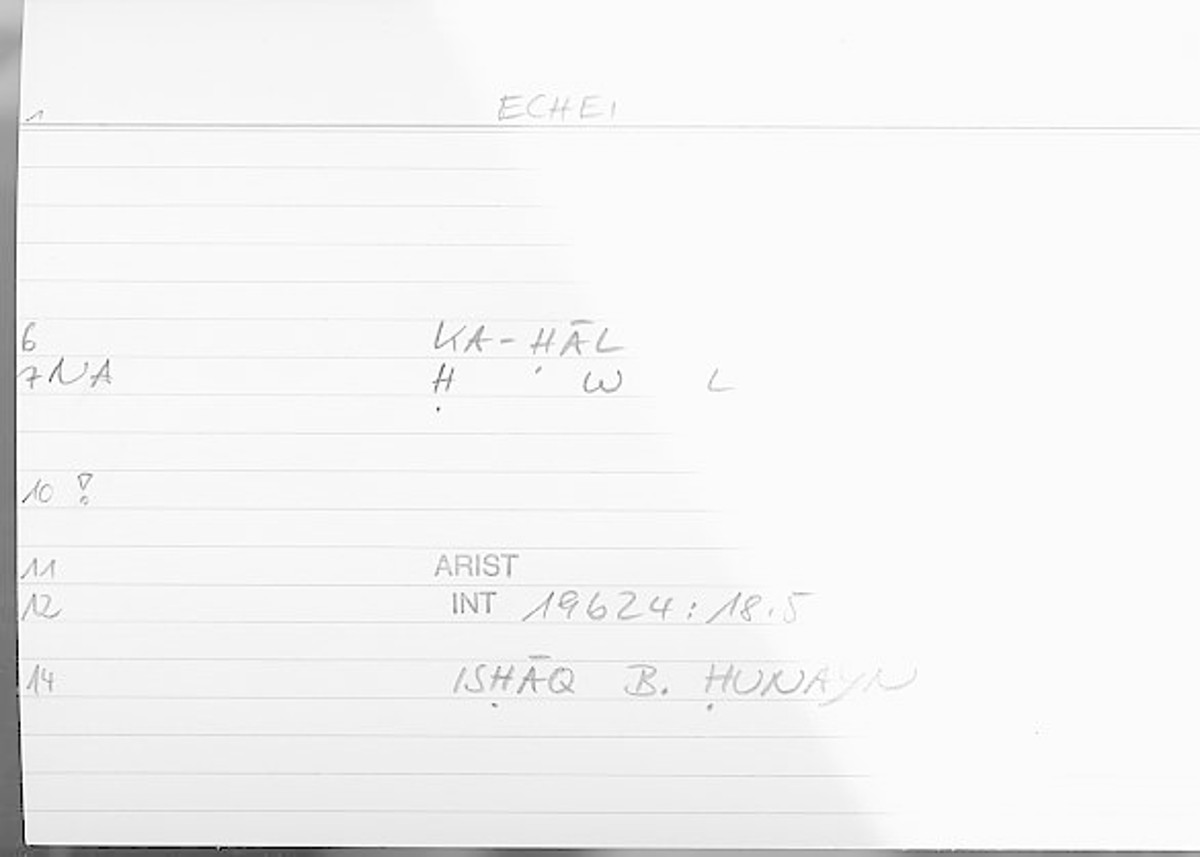 1 ECHEI
6 KA-ḤĀL
7NA Ḥ W L
10 !
11 ARIST
12 INT 19624:18.5
14 ISḤĀQ B. ḤUNAYN